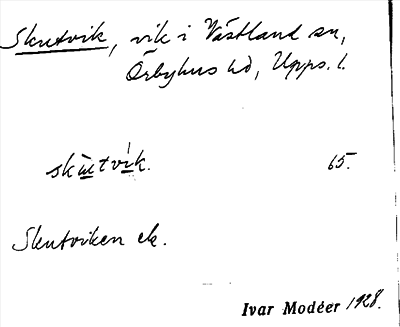 Skutvik, vik i Västland sn,
Örbyhus hd, Upps. l.
skùtvík. 65.
Skutviken ek.
Ivar Modéer 1928.